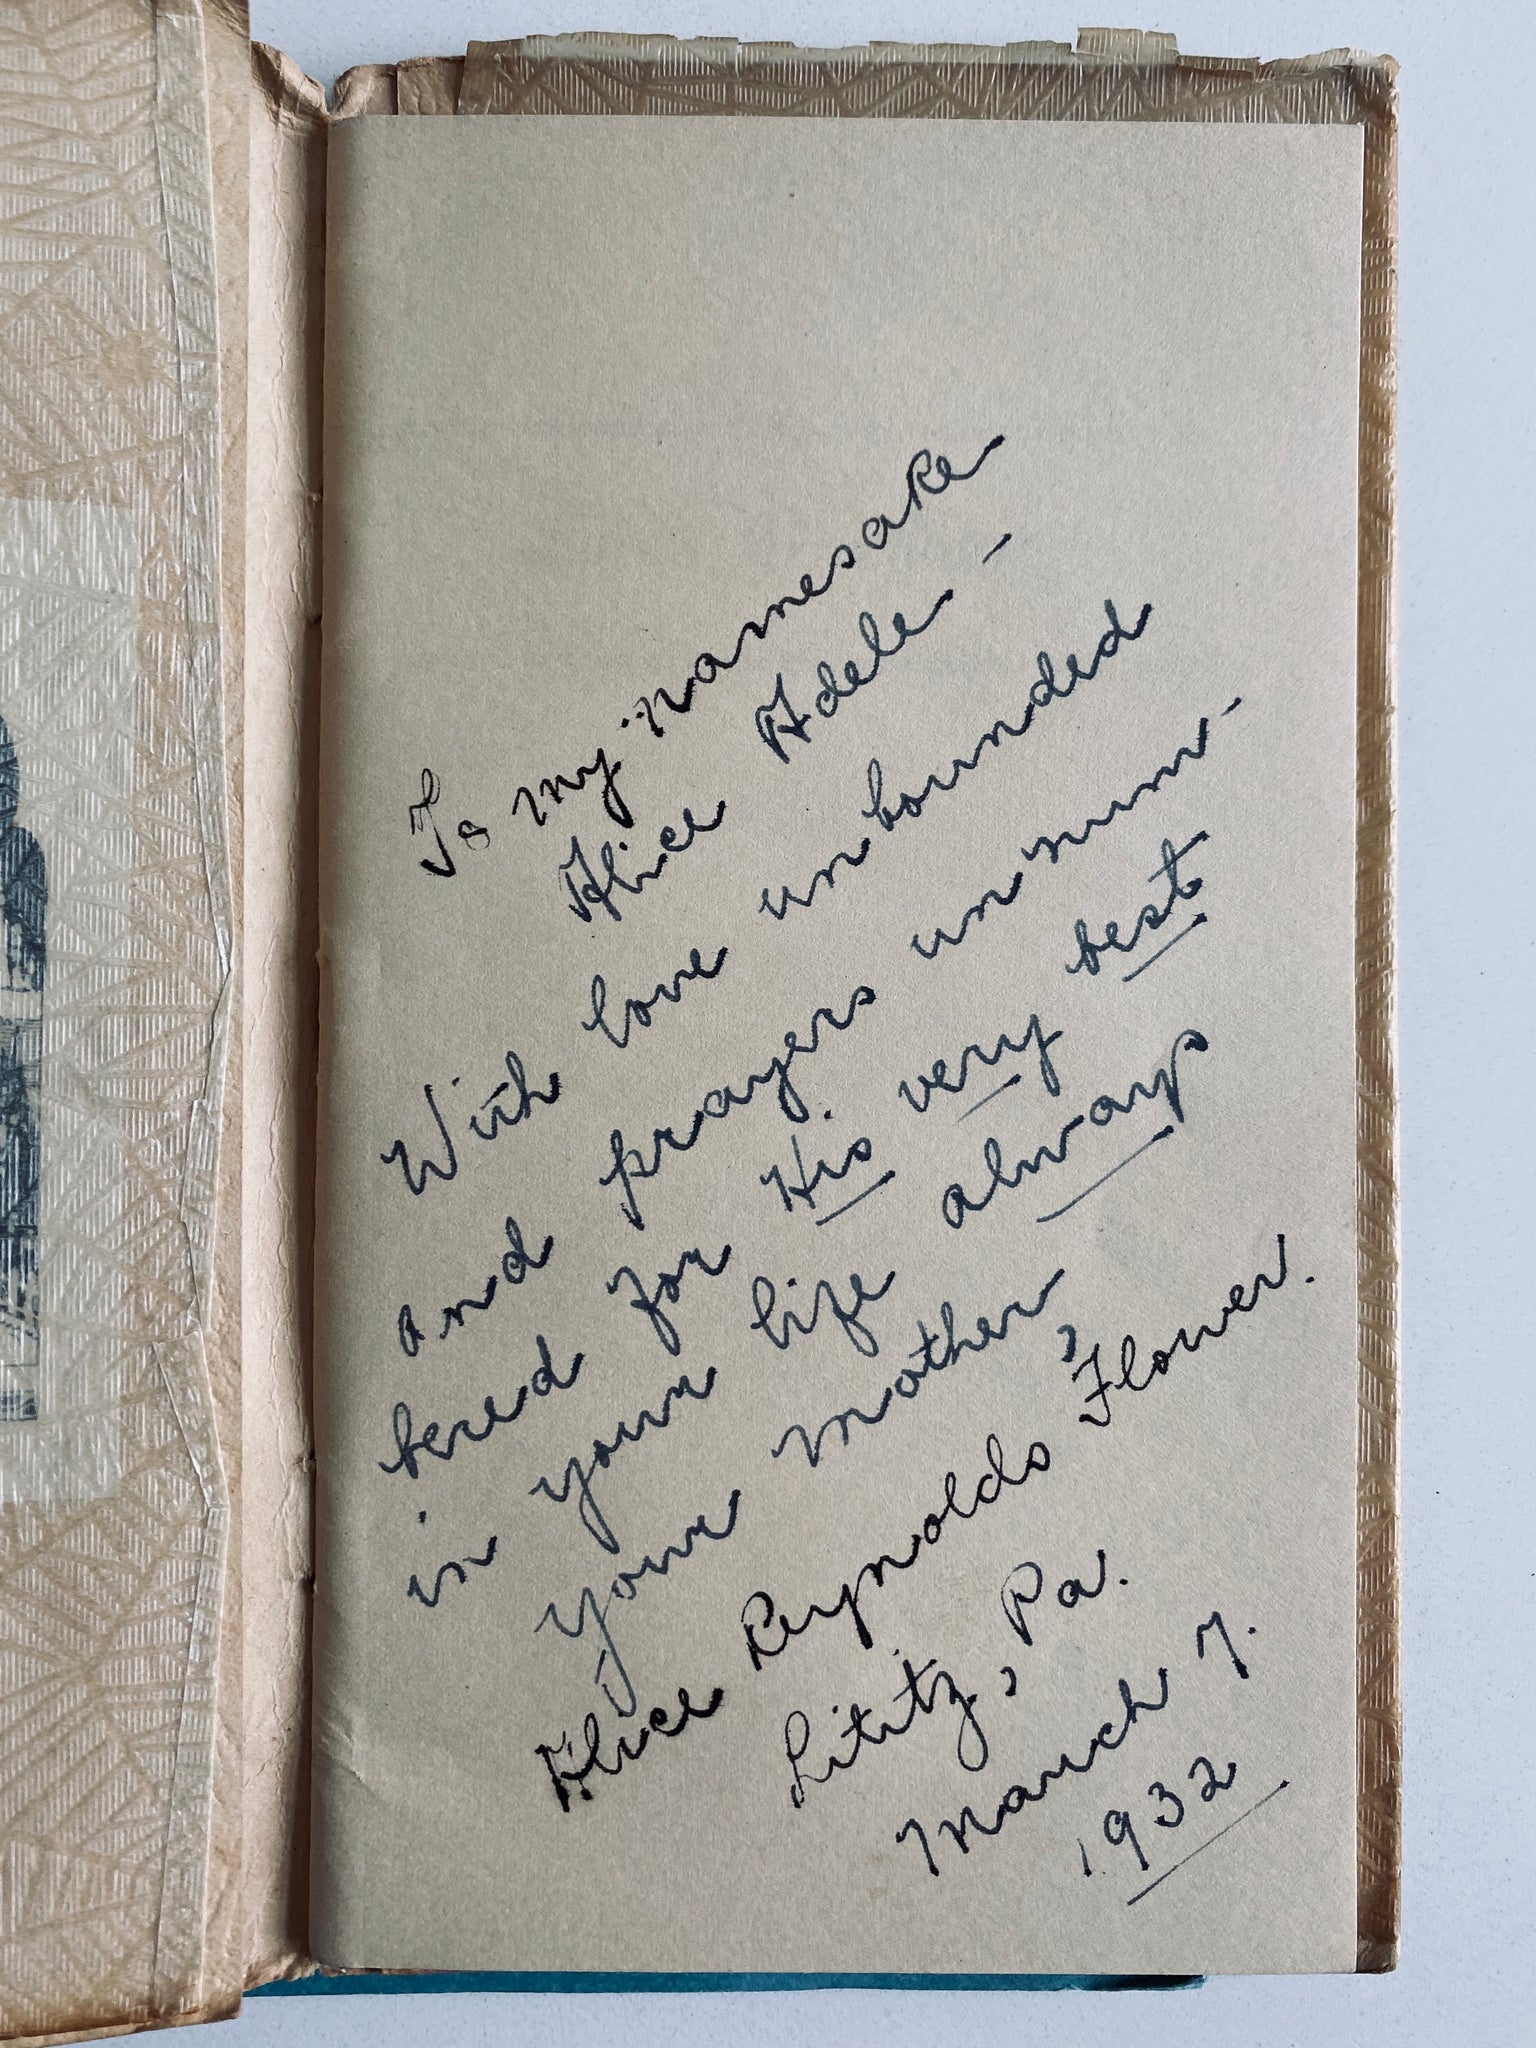 To my namesake
Alice Adele –
With love unbounded
and prayers unnum-
bered for His very best
in your life always
your mother,
Alice Reynolds Flower.
Lititz, Pa.
March 7.
1932